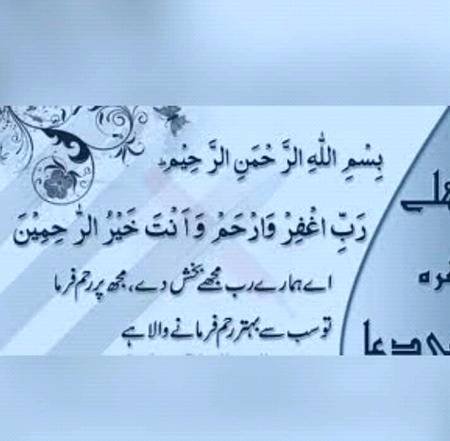 بِسْمِ اللّٰهِ الرَّحْمٰنِ الرَّحِیْمِ
رَبِّ اغْفِرْ وَارْحَمْ وَاَنْتَ خَیْرُ الرّٰحِمِیْنَ
اے ہمارے رب مجھے بخش دے، مجھ پر رحم فرما
تو سب سے بہتر رحم فرمانے والا ہے
دعا